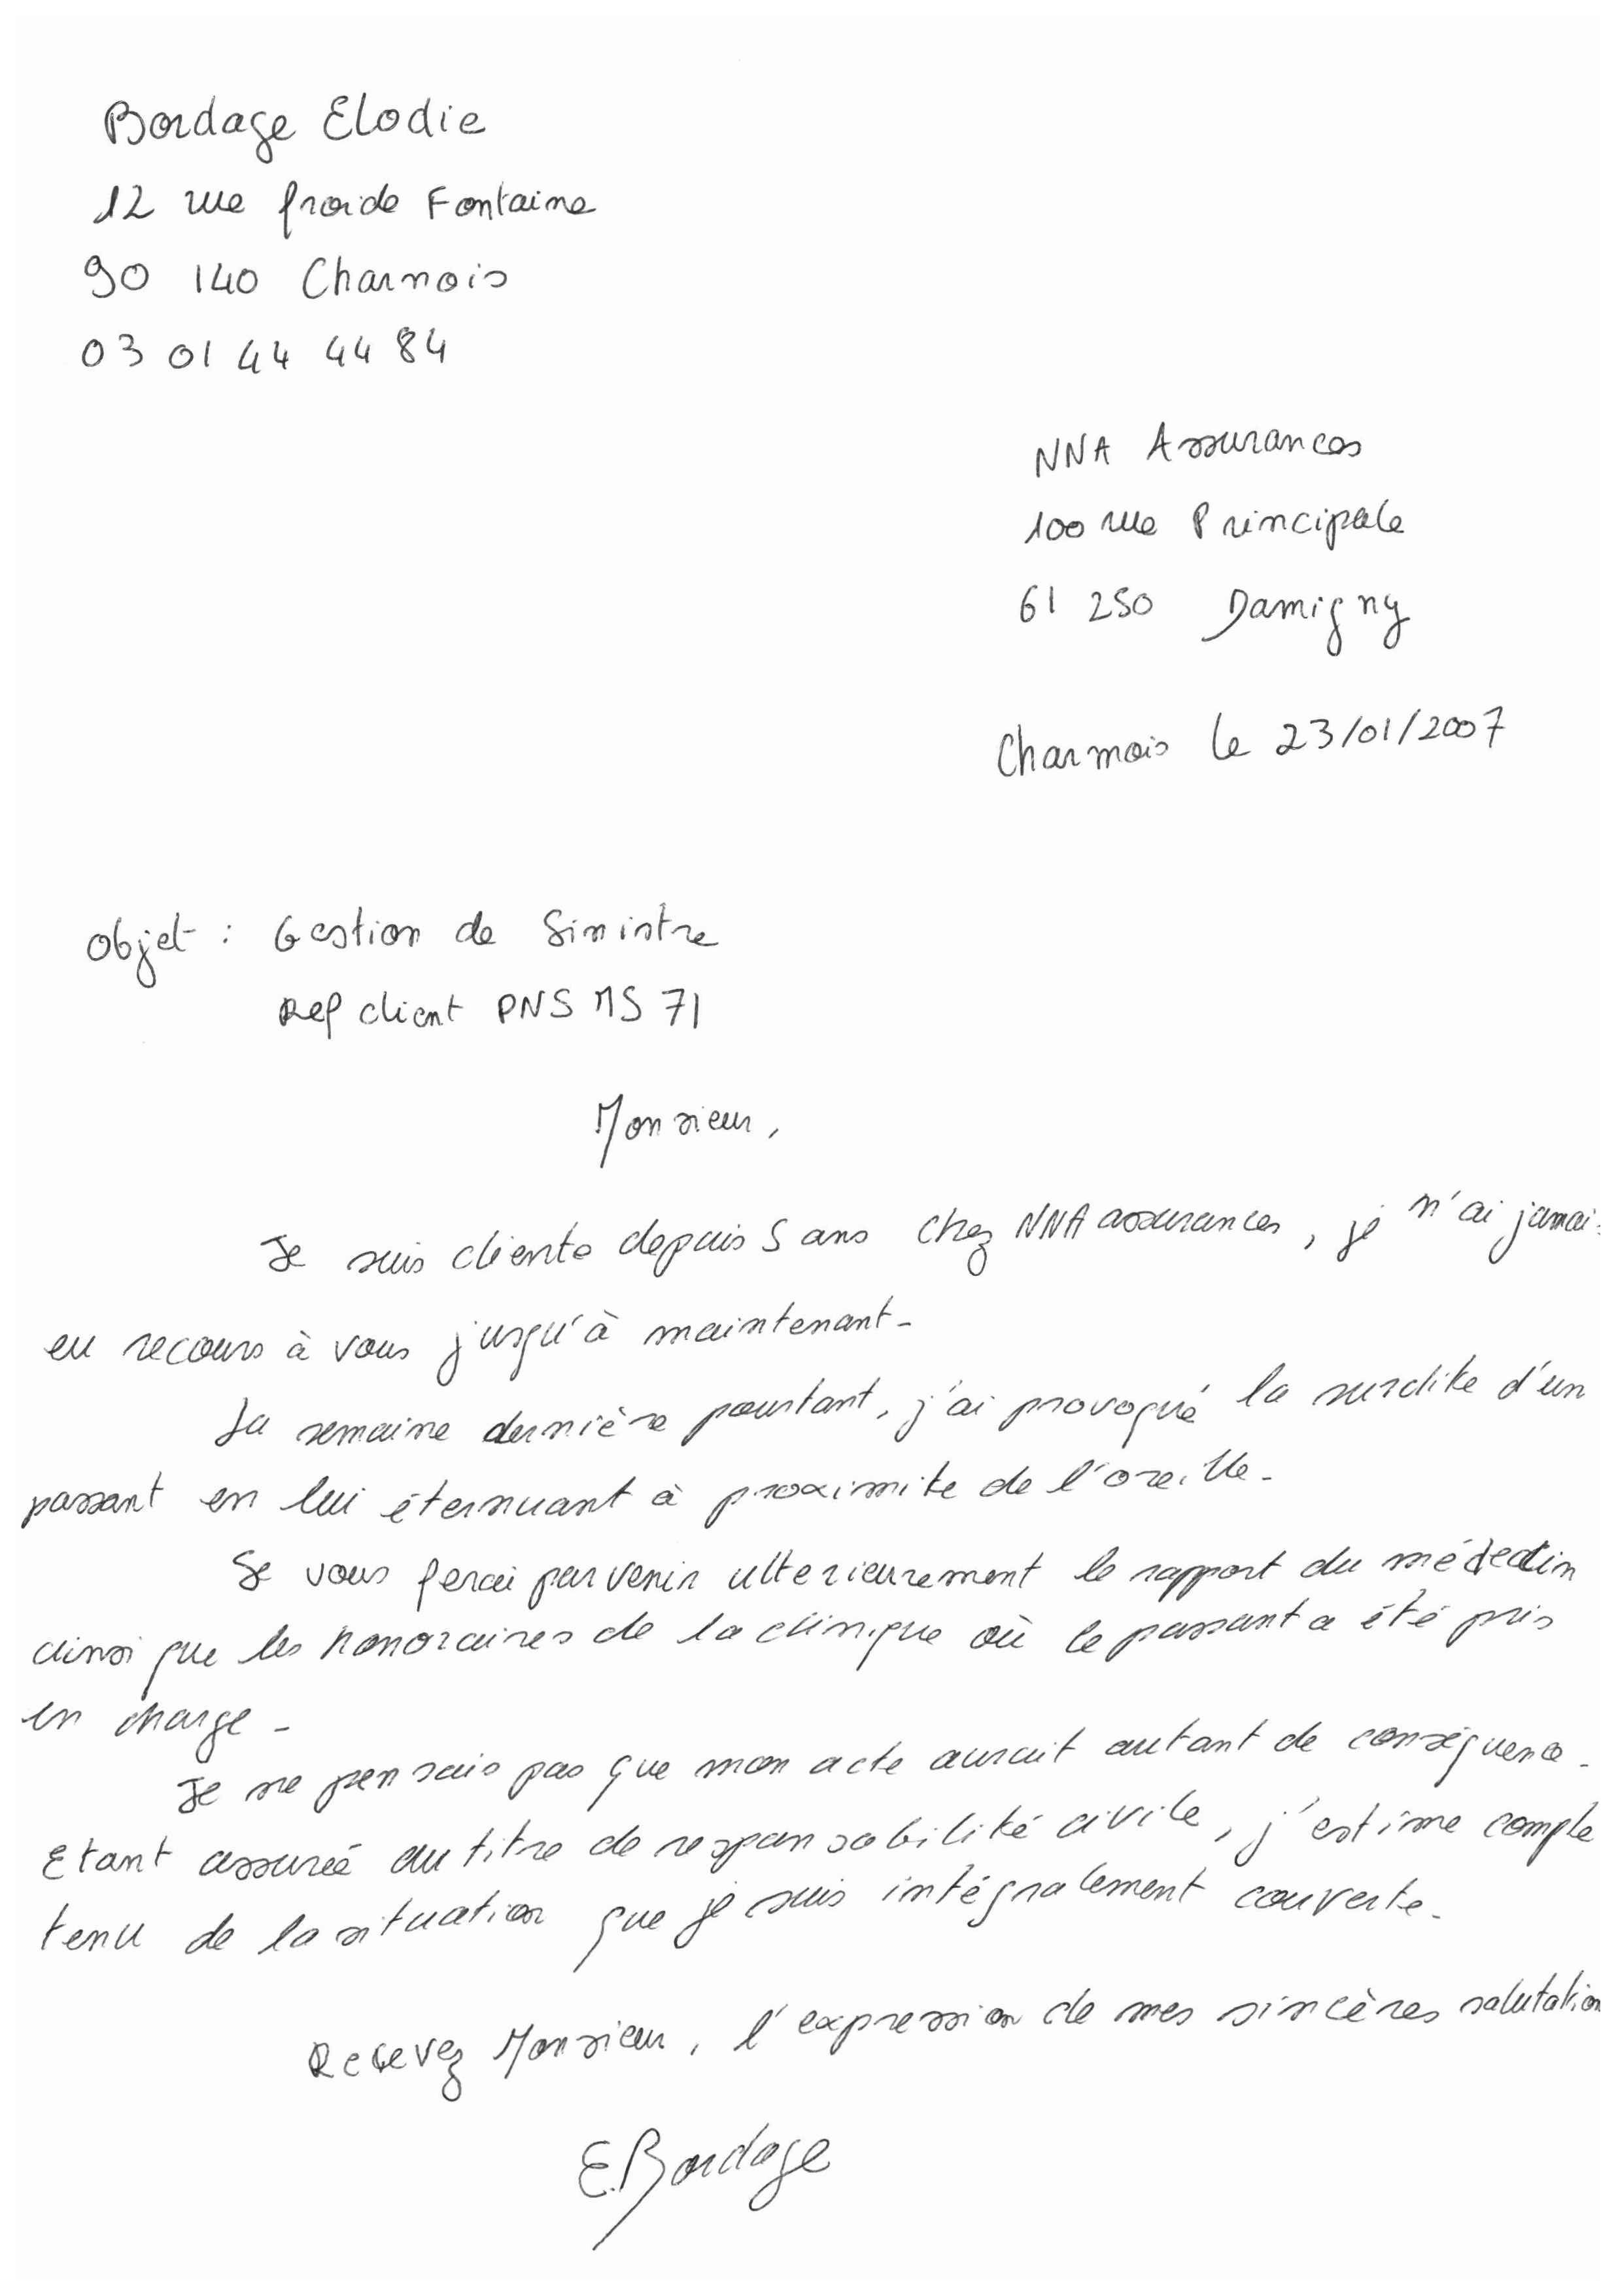 Bordage Elodie
12 rue froide Fontaine
90 140 Charmois
03 01 44 44 84
NNA Assurances
100 rue Principale
61 250 Damigny
Charmois le 23/01/2007
Objet : Gestion de Sinistre
Ref client PNSMS 71
Monsieur,
Je suis cliente depuis 5 ans chez NNA assurances, je n'ai jamais
eu recours à vous jusqu'à maintenant.
La semaine dernière pourtant, j'ai provoqué la surdite d'un
passant en lui éternuant à proximite de l'oreille.
Je vous ferai parvenir ulterieurement le rapport du médecin
ainsi que les honoraires de la clinique où le passant a été pris
en charge.
Je ne pensais pas que mon acte aurait autant de conséquence.
Etant assurée au titre de responsabilité civile, j'estime compte
tenu de la situation que je suis intégralement couverte.
Recevez Monsieur, l'expression de mes sincères salutation
E.Bordage